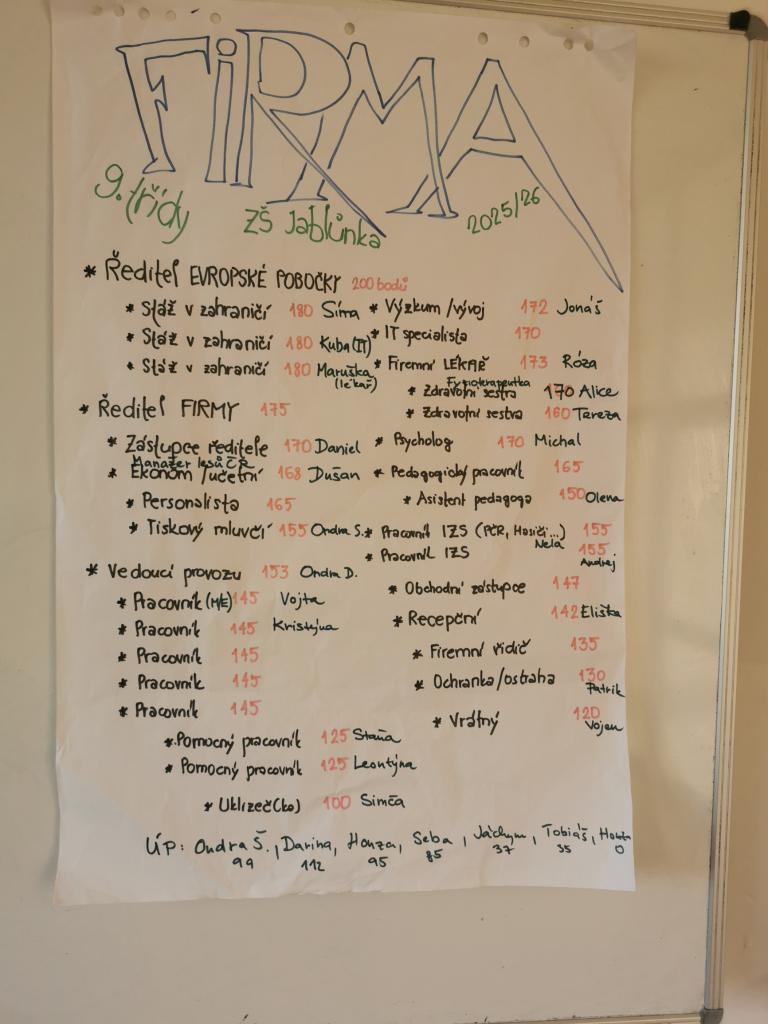 FiRMA
9. třídy ZŠ Jablůnka 2025/26
* Ředitel EVROPSKÉ POBOČKY 200 bodů
* Stáž v zahraničí 180 Sima
* Stáž v zahraničí 180 Kuba (IT)
* Stáž v zahraničí 180 Maruška
(lékař)
* Ředitel FIRMY 175
* Zástupce ředitele 170 Daniel
Manažer lesů ČR
* Ekonom /účetní 168 Dušan
* Personalista 165
* Tiskový mluvčí 155 Ondra S.
* Vedoucí provozu 153 Ondra D.
* Pracovník (M/E) 145 Vojta
* Pracovník 145 Kristýna
* Pracovník 145
* Pracovník 145
* Pracovník 145
* Pomocný pracovník 125 Staňa
* Pomocný pracovník 125 Leontýna
* Uklízeč(ka) 100 Simča
* Výzkum /vývoj 172 Jonáš
* IT specialista 170
* Firemní LÉKAŘ 173 Róza
Fyzioterapeutka
* Zdravotní sestra 170 Alice
* Zdravotní sestra 160 Tereza
* Psycholog 170 Michal
* Pedagogický pracovník 165
* Asistent pedagoga 150 Olena
* Pracovník IZS (PČR, Hasiči...) 155
Nela
* Pracovník IZS 155
Andrej
* Obchodní zástupce 147
* Recepční 142 Eliška
* Firemní řidič 135
* Ochranka/ostraha 130
Patrik
* Vrátný 120
Vojen
ÚP: Ondra Š., Darina, Honza, Seba, Jáchym, Tobiáš,
99 112 95 85 37 35 0